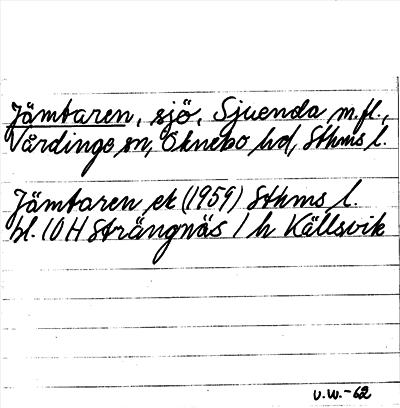 Jämtaren, sjö, Sjuenda m.fl.,
Vårdinge sn, Öknebo hd, Sthms l.
Jämtaren ek (1959) Sthms l.
bl. 10 H Strängnäs 1 h Källsvik
V.W.-62